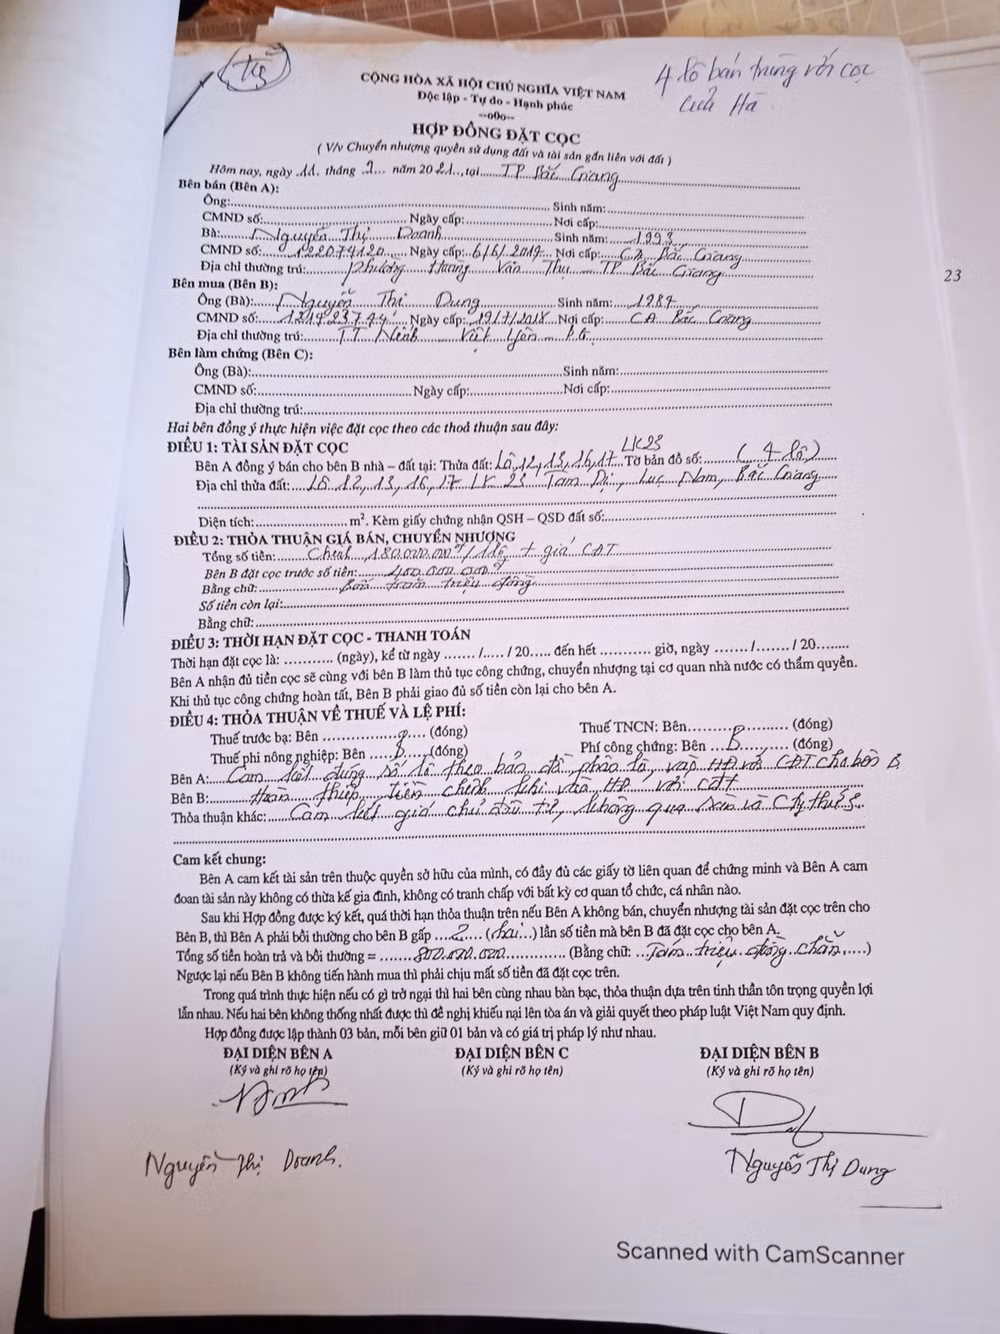 CỘNG HÒA XÃ HỘI CHỦ NGHĨA VIỆT NAM
Độc lập - Tự do - Hạnh phúc
--o0o--
4 lô bán trùng với cọc
của Hà
HỢP ĐỒNG ĐẶT CỌC
( V/v Chuyển nhượng quyền sử dụng đất và tài sản gắn liền với đất )
Hôm nay, ngày .11. tháng .2... năm 2021.., tại......TP Bắc Giang
Bên bán (Bên A):
Ông:.......... Sinh năm:..........
CMND số:.......... Ngày cấp:.......... Nơi cấp:..........
Bà:.......Nguyễn Thị Doanh.......... Sinh năm: ...1993
CMND số:......122074120..... Ngày cấp: 6/6/2019.. Nơi cấp: CA Bắc Giang
Địa chỉ thường trú:.......Phường Hoàng Văn Thụ TP Bắc Giang
Bên mua (Bên B):
Ông (Bà):.......Nguyễn Thị Dung.......... Sinh năm:....1987
CMND số:.... Ngày cấp: 19/7/2018 Nơi cấp: CA Bắc Giang
Địa chỉ thường trú:....TT Nếnh Việt Yên BG
Bên làm chứng (Bên C):
Ông (Bà):..........Sinh năm:..........
CMND số:..........Ngày cấp:..........Nơi cấp:..........
Địa chỉ thường trú:..........
Hai bên đồng ý thực hiện việc đặt cọc theo các thoả thuận sau đây:
ĐIỀU 1: TÀI SẢN ĐẶT CỌC
LK23
Bên A đồng ý bán cho bên B nhà – đất tại: Thửa đất: Lô 12, 13, 16, 17 Tờ bản đồ số:......( 4 lô )
Địa chỉ thửa đất:....Lô 12, 13, 16, 17 LK 23 Tam Dị, Lục Nam, Bắc Giang
Diện tích:.......... m². Kèm giấy chứng nhận QSH – QSD đất số:..........
ĐIỀU 2: THỎA THUẬN GIÁ BÁN, CHUYỂN NHƯỢNG
Tổng số tiền:.....Chênh 180.000.000đ/1 lô + giá CĐT
Bên B đặt cọc trước số tiền:.....400.000.000đ
Bằng chữ:.......Bốn trăm triệu đồng
Số tiền còn lại:..........
Bằng chữ:..........
ĐIỀU 3: THỜI HẠN ĐẶT CỌC - THANH TOÁN
Thời hạn đặt cọc là: .......... (ngày), kể từ ngày ....... /..... / 20..... đến hết .......... giờ, ngày ....... /....... / 20.......
Bên A nhận đủ tiền cọc sẽ cùng với bên B làm thủ tục công chứng, chuyển nhượng tại cơ quan nhà nước có thẩm quyền.
Khi thủ tục công chứng hoàn tất, Bên B phải giao đủ số tiền còn lại cho bên A.
ĐIỀU 4: THỎA THUẬN VỀ THUẾ VÀ LỆ PHÍ:
Thuế trước bạ: Bên .......... (đóng) Thuế TNCN: Bên...B.......... (đóng)
Thuế phi nông nghiệp: Bên ....B....(đóng) Phí công chứng: Bên ...B..... (đóng)
Bên A:....Cam kết đúng số lô theo bản đồ phân lô, vào HĐ với CĐT cho bên B
Bên B:.......Hoàn thiện tiền chênh khi vào HĐ với CĐT
Thỏa thuận khác:....Cam kết giá chủ đầu tư, không qua sàn và
Cam kết chung:
Bên A cam kết tài sản trên thuộc quyền sở hữu của mình, có đầy đủ các giấy tờ liên quan để chứng minh và Bên A cam
đoan tài sản này không có thừa kế gia đình, không có tranh chấp với bất kỳ cơ quan tổ chức, cá nhân nào.
Sau khi Hợp đồng được ký kết, quá thời hạn thỏa thuận trên nếu Bên A không bán, chuyển nhượng tài sản đặt cọc trên cho
Bên B, thì Bên A phải bồi thường cho bên B gấp ....2.... (hai...) lần số tiền mà bên B đã đặt cọc cho bên A.
Tổng số tiền hoàn trả và bồi thường = .......800.000.000.......... (Bằng chữ: ..Tám triệu đồng chẵn.....)
Ngược lại nếu Bên B không tiến hành mua thì phải chịu mất số tiền đã đặt cọc trên.
Trong quá trình thực hiện nếu có gì trở ngại thì hai bên cùng nhau bàn bạc, thỏa thuận dựa trên tinh thần tôn trọng quyền lợi
lẫn nhau. Nếu hai bên không thống nhất được thì đề nghị khiếu nại lên tòa án và giải quyết theo pháp luật Việt Nam quy định.
Hợp đồng được lập thành 03 bản, mỗi bên giữ 01 bản và có giá trị pháp lý như nhau.
ĐẠI DIỆN BÊN A ĐẠI DIỆN BÊN C ĐẠI DIỆN BÊN B
(Ký và ghi rõ họ tên) (Ký và ghi rõ họ tên) (Ký và ghi rõ họ tên)
Nguyễn Thị Doanh. Nguyễn Thị Dung
Scanned with CamScanner
23